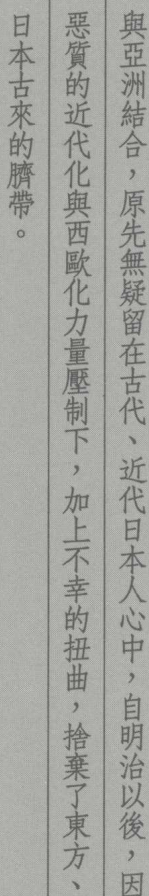 與亞洲結合，原先無疑留在古代、近代日本人心中，自明治以後，因
惡質的近代化與西歐化力量壓制下，加上不幸的扭曲，捨棄了東方、
日本古來的臍帶。